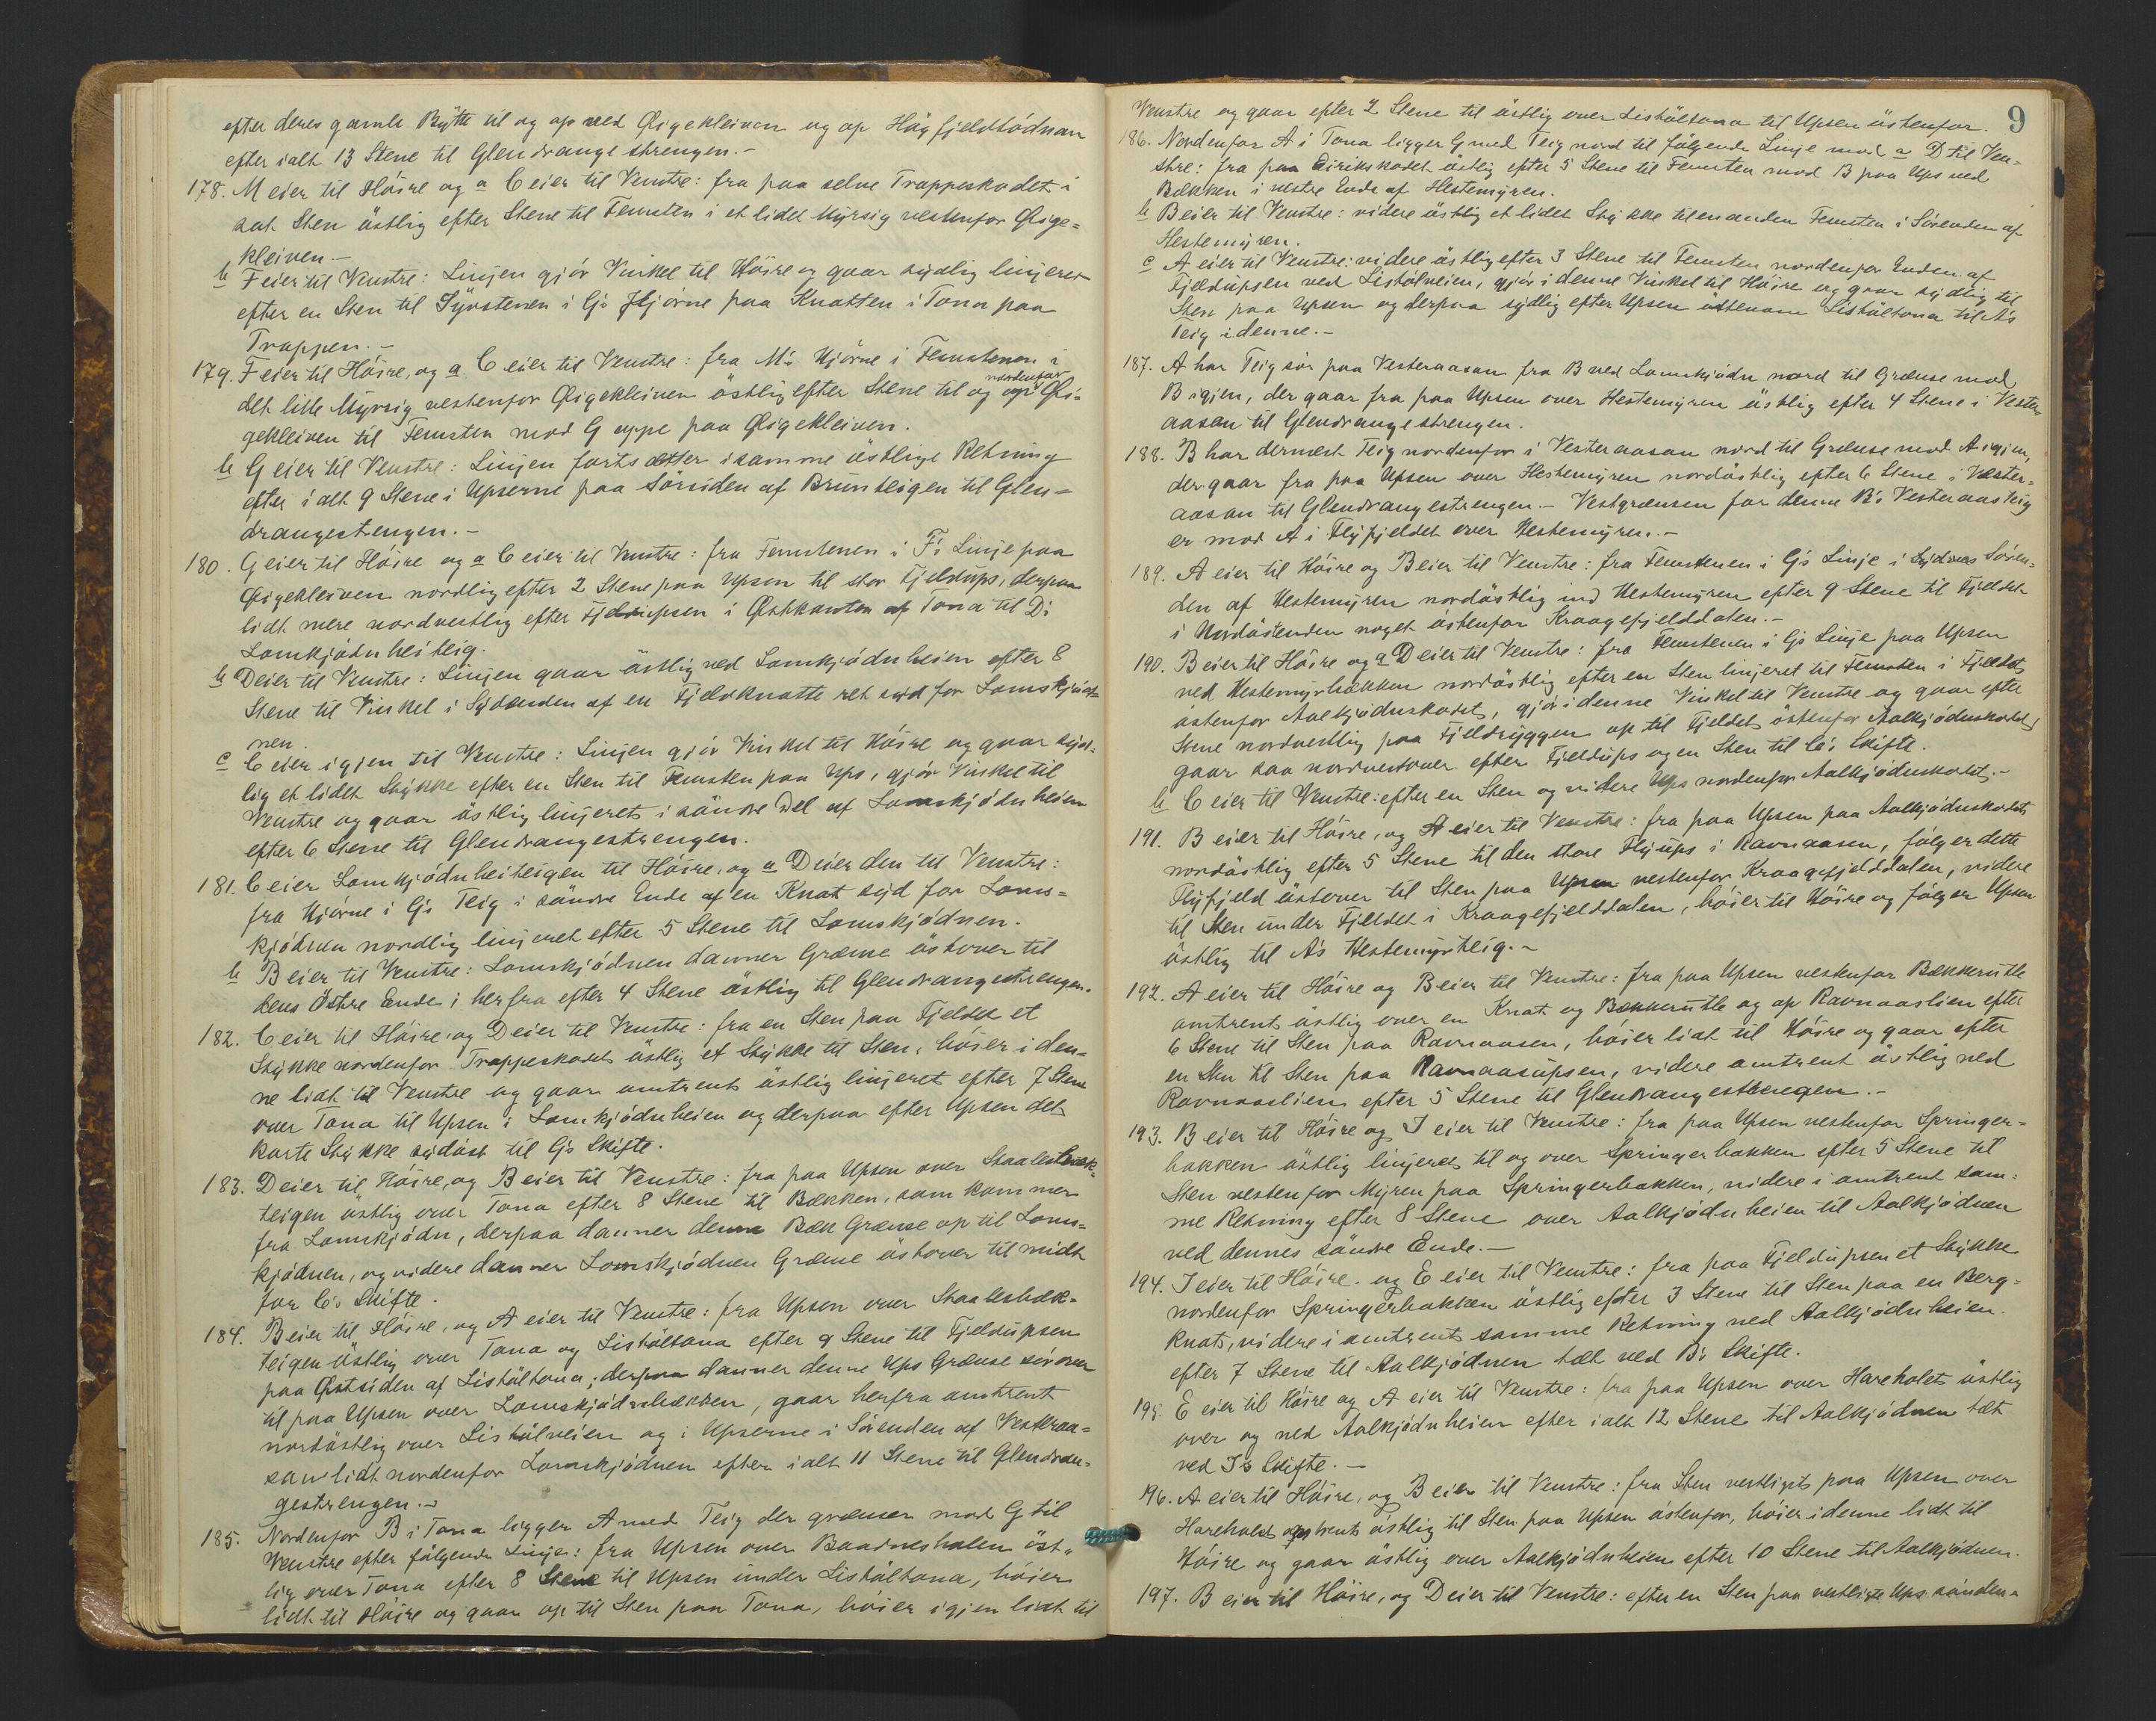 efter deres gamle Bytte til og op ved Øigekleiven og op Høgfjeldtødnan
efter ialt 13 Stene til Glendrangestrengen.-
178. M eier til Höire og a C eier til Venstre: fra paa selve Trappeskadet i
sat Sten östlig efter Stene til Femsten i et lidet Myrsig vestenfor Øige=
kleiven.-
b F eier til Venstre: Linjen gjör Vinkel til Höire og gaar sydlig linjeret
efter en Sten til Syvstenen i G's Hjörne paa Knatten i Tona paa
Trappen.-
179. F eier til Höire, og a C eier til Venstre: fra M's Hjörne i Femstenen i
det lille Myrsig vestenfor Øigekleiven östlig efter Stene til og nordenfor Øi-
gekleiven til Femsten mod G oppe paa Øigekleiven.
b G eier til Venstre: Linjen fortsætter i samme östlige Retning
efter i alt 9 Stene i Upserne paa Sörsiden af Brunteigen til Glen=
drangestrengen.-
180. G eier til Höire og a C eier til Venstre: fra Femstenen i F's Linje paa
Øigekleiven nordlig efter 2 Stene paa Upsen til stor Fjeldups, derpaa
lidt mere nordvestlig efter Fjeldupsen i Østkanten af Tona til D's
Lomkjödnheiteig.
b D eier til Venstre: Linjen gaar östlig ved Lomkjödnheien efter 8
Stene til Vinkel i Sydenden af en Fjeldknatte ret syd for Lomskjöd-
nen.
c C eier igjen til Venstre: Linjen gjör Vinkel til Höire og gaar syd-
lig et lidet Stykke efter en Sten til Femsten paa Ups, gjör Vinkel til
Venstre og gaar östlig linjeret i söndre Del af Lomskjödnheien
efter 6 Stene til Glendrangestrengen.
181. C eier Lomkjödnheiteigen til Höire, og a D eier den til Venstre:
fra Hjörne i G's Teig i söndre Ende af en Knat syd for Loms=
kjödnen nordlig linjeret efter 5 Stene til Lomskjödnen.
b B eier til Venstre: Lomskjödnen danner Grænse östover til
dens Östre Ende; herfra efter 4 Stene östlig til Glendrangestrengen.
182. C eier til Höire, og D eier til Venstre: fra en Sten paa Fjeldet et
Stykke nordenfor Trappeskadet östlig et Stykke til Sten, böier i den=
ne lidt til Venstre og gaar omtrent östlig linjeret efter 7 Stene
over Tona til Upsen i Lomkjödnheien og derpaa efter Upsen det
korte Stykke sydöst til G's Skifte.
183. D eier til Höire, og B eier til Venstre: fra paa Upsen over Skaalesbæk-
teigen östlig over Tona efter 8 Stene til Bækken, som kommer
fra Lomskjödn, derpaa danner denne Bæk Grænse op til Loms=
kjödnen, og videre danner Lomskjödnen Grænse östover til midt
for C's Skifte.
184. B eier til Höire, og A eier til Venstre: fra Upsen over Skaalesbæk=
teigen östlig over Tona og Listöltona efter 9 Stene til Fjeldupsen
paa Östsiden af Listöltona; derpaa danner denne Ups Grænse sörover
til paa Upsen over Lomskjödnbækken, gaar herfra omtrent
nordöstlig over Listölveien og i Upserne i Sörenden af Vesteraa=
san lidt nordenfor Lomskjödnen efter ialt 11 Stene til Glendran-
gestrengen.-
185. Nordenfor B i Tona ligger A med Teig der grænser mod G til
Venstre efter fölgende Linje: fra Upsen over Baadneshalen öst=
lig over Tona efter 8 Stene til Upsen under Listöltona, böier
lidt til Höire og gaar op til Sten paa Tona, böier igjen lidt til
9
Venstre og gaar efter 2 Stene til östlig over Listöltona til Upsen östenfor.
186. Nordenfor A i Tona ligger G med Teig nord til fölgende Linje mod a D til Ven-
stre: fra paa Eirikskadet östlig efter 5 Stene til Femsten mod B paa Ups ved
Bækken i vestre Ende af Hestemyren.
b B eier til Venstre: videre östlig et lidet Stykke til en anden Femsten i Sörenden af
Hestemyren.
c A eier til Venstre: videre östlig efter 3 Stene til Femsten nordenfor Enden af
Fjeldupsen ved Listölveien, gjör i denne Vinkel til Höire og gaar sydlig til
Sten paa Upsen og derpaa sydlig efter Upsen östenom Listöltona til A's
Teig i denne.-
187. A har Teig sör paa Vesteraasan fra B ved Lomskjödn nord til Grænse mod
B igjen, der gaar fra paa Upsen over Hestemyren östlig efter 4 Stene i Vester-
aasan til Glendrangestrengen.
188. B har dernæst Teig nordenfor i Vesteraasan nord til Grænse mod A igjen,
der gaar fra paa Upsen over Hestemyren nordöstlig efter 6 Stene i Vester=
aasan til Glendrangestrengen.- Vestgrænsen for denne B's Vesteraasteig
er mod A i Flyfjeldet over Hestemyren.-
189. A eier til Höire og B eier til Venstre: fra Femstenen i G's Linje i Sören-
den af Hestemyren nordöstlig ind Hestemyren efter 9 Stene til Fjeldet
i Nordöstenden noget östenfor Kraagefjelddalen.-
190. B eier til Höire og a D eier til Venstre: fra Femstenen i G's Linje paa Upsen
ved Hestemyrbækken nordöstlig efter en Sten linjeret til Femsten i Fjeldet
östenfor Aalkjödnskadet, gjör i denne Vinkel til Venstre og gaar efter
Stene nordvestlig paa Fjeldryggen op til Fjeldet östenfor Aalkjödnskadet,
gaar saa nordvestover efter Fjeldups og en Sten til C's Skifte.
b C eier til Venstre: efter en Sten og videre Ups nordenfor Aalkjödnskadet.-
191. B eier til Höire, og A eier til Venstre: fra paa Upsen paa Aalkjödnskadet
nordöstlig efter 5 Stene til den store Flyups i Ravnaasen, fölger dette
Flyfjeld östover til Sten paa Upsen vestenfor Kraagefjelddalen, videre
til Sten under Fjeldet i Kraagefjelddalen, böier til Höire og fölger Upsen
östlig til A's Hestemyrteig.-
192. A eier til Höire og B eier til Venstre: fra paa Upsen vestenfor Bækkerutle
omtrent östlig over en Knat og Bækkerutle og op Ravnaaslien efter
6 Stene til Sten paa Ravnaasen, böier lidt til Höire og gaar efter
en Sten til Sten paa Ravnaasupsen, videre omtrent östlig ned
Ravnaaslien efter 5 Stene til Glendrangestrengen.-
193. B eier til Höire og I eier til Venstre: fra paa Upsen vestenfor Springer=
bakken östlig linjeret til og over Springerbakken efter 5 Stene til
Sten vestenfor Myren paa Springerbakken, videre i omtrent sam-
me Retning efter 8 Stene over Aalkjödnheien til Aalkjödnen
ved dennes söndre Ende.-
194. I eier til Höire, og E eier til Venstre: fra paa Fjeldupsen et Stykke
nordenfor Springerbakken östlig efter 3 Stene til Sten paa en Berg-
knat, videre i omtrent samme Retning ned Aalkjödnheien
efter 7 Stene til Aalkjödnen tæt ved B's Skifte.
195. E eier til Höire og A eier til Venstre: fra paa Upsen over Hareholet östlig
over og ned Aalkjödnheien efter ialt 12 Stene til Aalkjödnen tæt
ved I's Skifte.-
196. A eier til Höire, og B eier til Venstre: fra Sten vestligst paa Upsen over
Hareholet omtrent östlig til Sten paa Upsen östenfor, böier i denne lidt til
Höire og gaar östlig over Aalkjödnheien efter 10 Stene til Aalkjödnen.
197. B eier til Höire, og D eier til Venstre: efter en Sten paa vestligste Ups